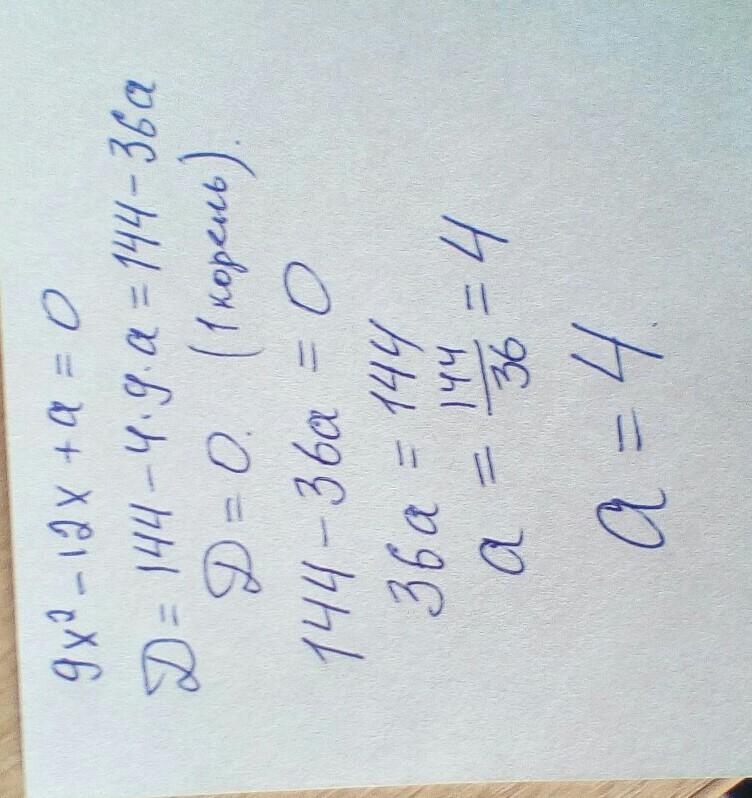 9x² - 12x + a = 0
D = 144 - 4·9·a = 144 - 36a
D = 0. (1 корень).
144 - 36a = 0
36a = 144
a = 144/36 = 4
a = 4.